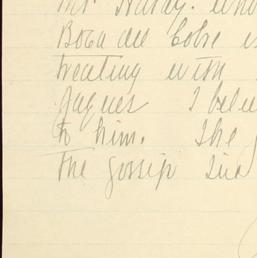 Mr. Hardy. who
Boca del Cobre is
treating with
Jaques I belie
to him. The
the gossip